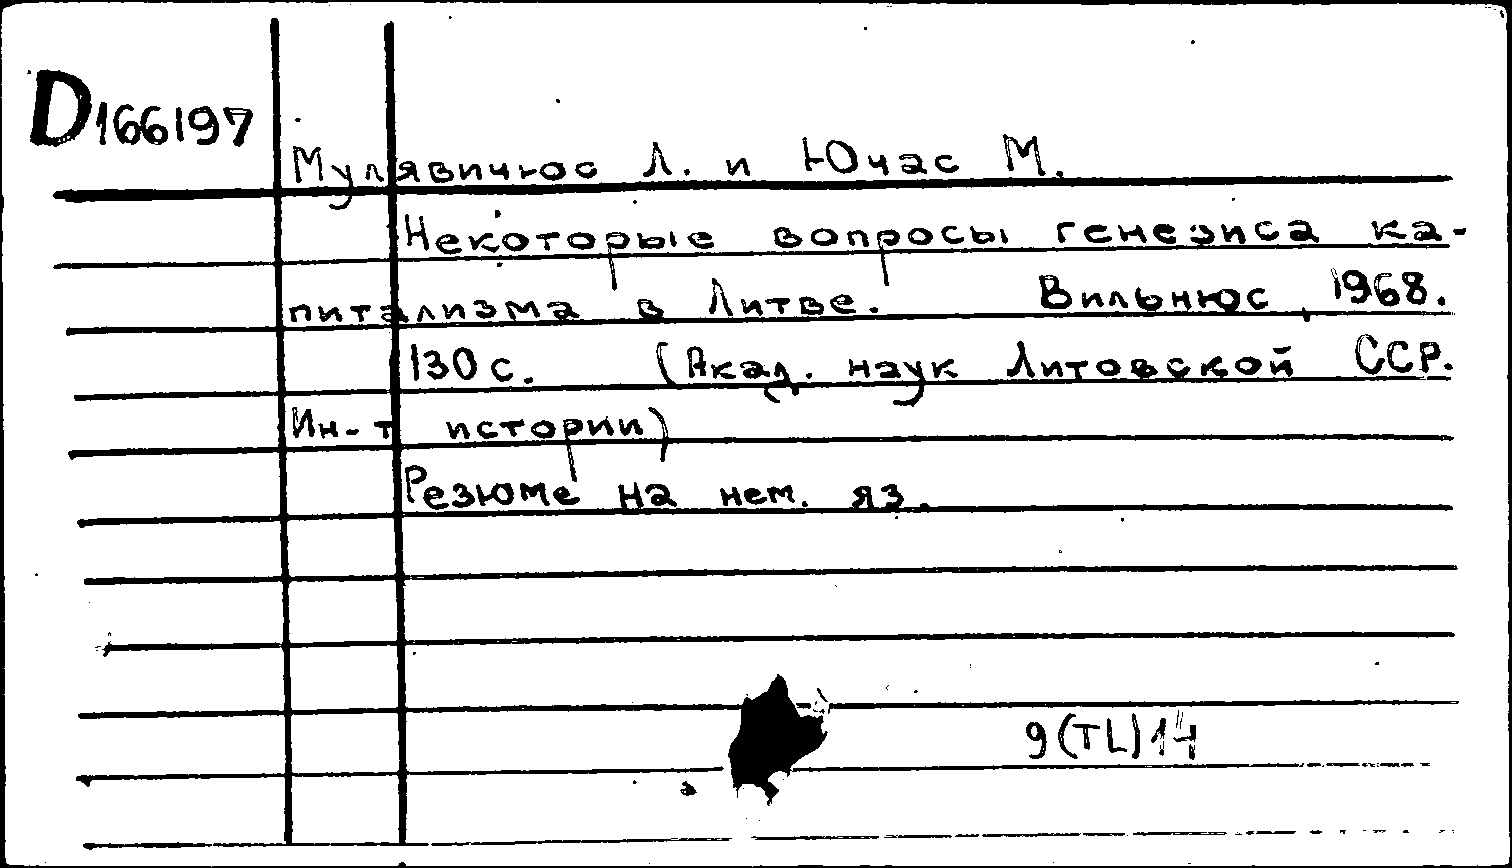 D166197
Мулявичюс Л. и Ючас М.
Некоторые вопросы генезиса ка-
питализма в Литве. Вильнюс, 1968.
130 с. (Акад. наук Литовской ССР.
Ин-т истории)
Резюме на нем. яз.
9(TL)14